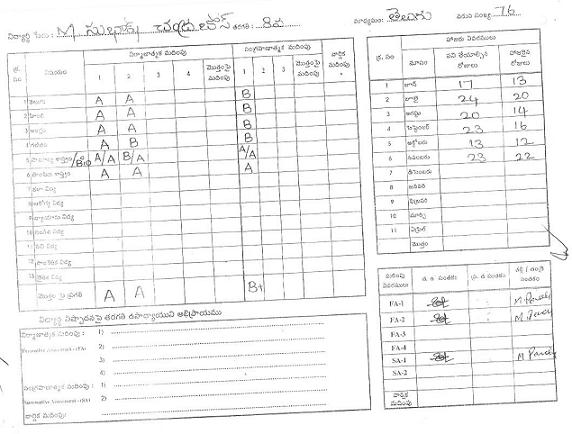 విద్యార్థి పేరు: M సుభాష్ చంద్రబోస్ తరగతి: 8వ మాధ్యమం: తెలుగు వరుస సంఖ్య: 76
క్ర. సం విషయం నిర్మాణాత్మక మదింపు సంగ్రహణాత్మక మదింపు వార్షిక మదింపు
1 2 3 4 మొత్తంపై మదింపు 1 2 3 మొత్తంపై మదింపు
1 తెలుగు A A B
2 హిందీ A A B
3 ఆంగ్లం A A B
4 గణితం A B B
5 సామాన్య శాస్త్రం/Bio A/A B/A A/A
6 సాంఘిక శాస్త్రం A A A
7 కళా విద్య
8 ఆరోగ్య విద్య
9 వ్యాయామ విద్య
10
11 పని విద్య
12
13
మొత్తం పై ప్రగతి A A B+
హాజరు వివరములు
క్ర. సం మాసం పని చేయాల్సిన రోజులు హాజరైన రోజులు
1 జూన్ 17 13
2 జూలై 24 20
3 ఆగస్టు 20 14
4 సెప్టెంబర్ 23 16
5 అక్టోబరు 13 12
6 నవంబరు 23 22
7 డిసెంబరు
8 జనవరి
9 ఫిబ్రవరి
10 మార్చి
11 ఏప్రిల్
మొత్తం
మదింపు వివరములు త. ఉ సంతకం ప్ర. ఉ సంతకం తల్లి / తండ్రి సంతకం
FA-1
FA-2
FA-3
FA-4
SA-1
SA-2
వార్షిక మదింపు
విద్యార్థి నిష్పాదనపై తరగతి ఉపాధ్యాయుని అభిప్రాయము
నిర్మాణాత్మక మదింపు : 1)
2)
3)
4)
సంగ్రహణాత్మక మదింపు : 1)
2)
వార్షిక మదింపు: